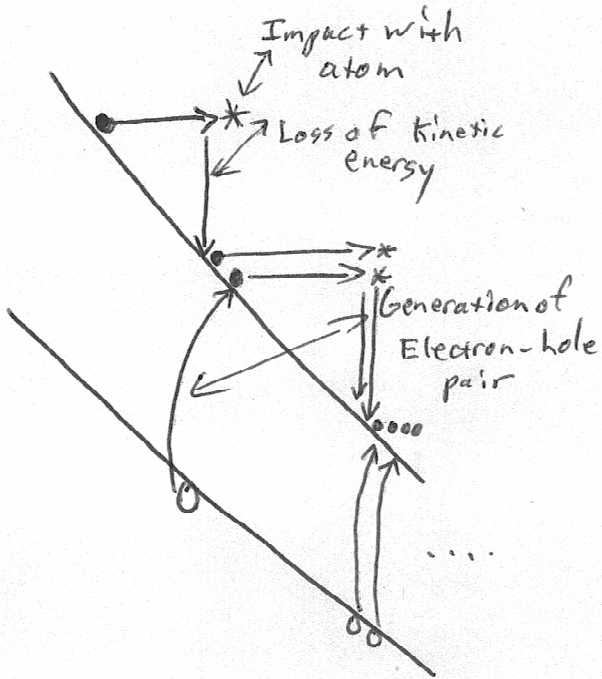 Impact with
atom
Loss of Kinetic
energy
Generation of
Electron-hole
pair